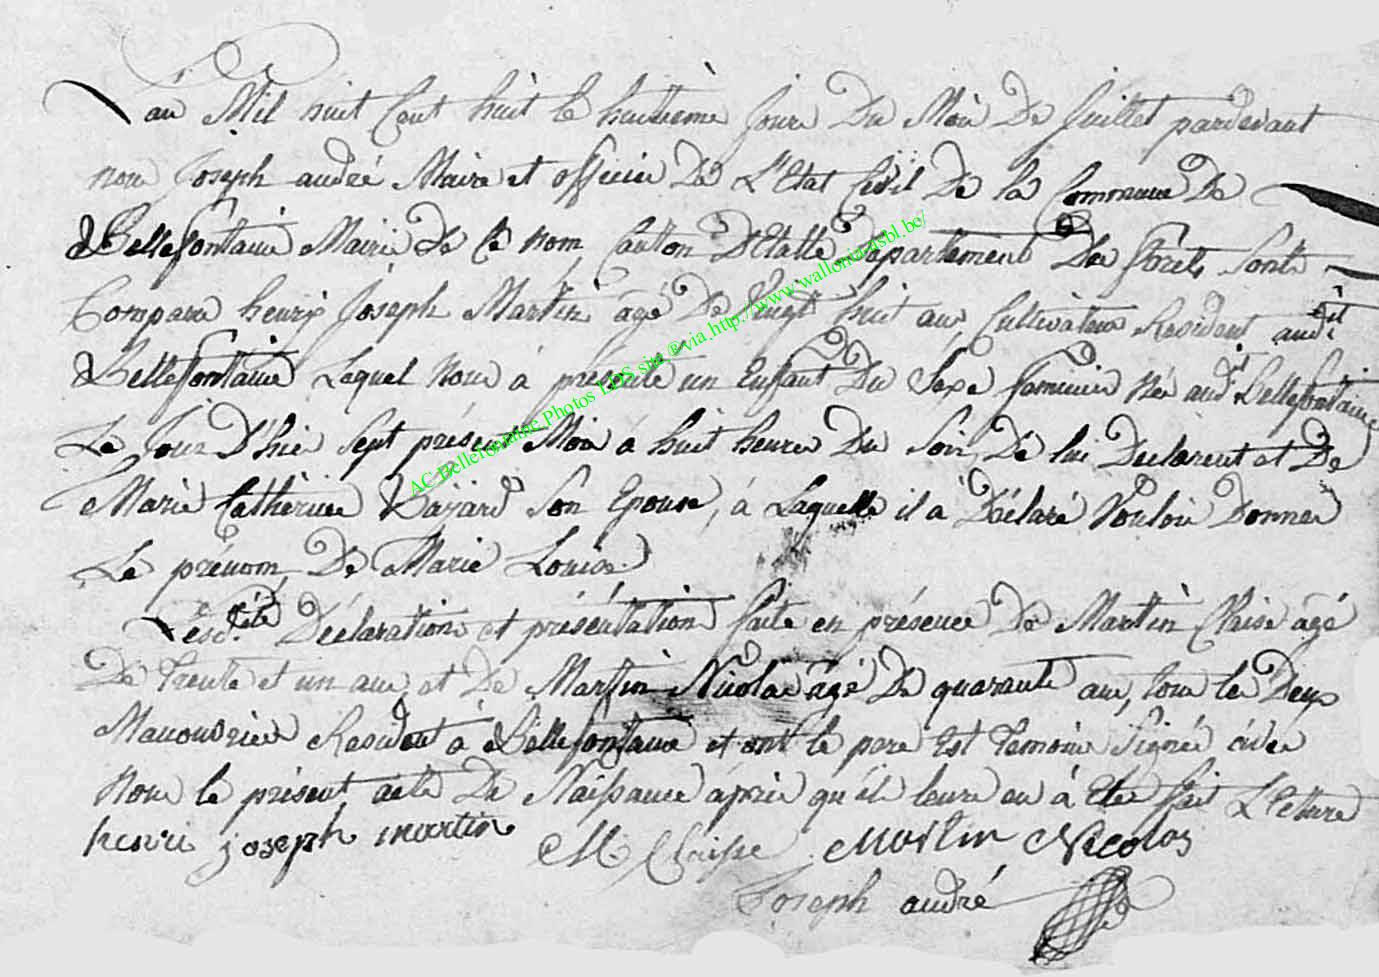 L'an Mil huit Cent huit le huitieme Jour Du Moi De Juillet pardevant
nou Joseph andré Maire et officier De L'Etat Civil De la Commune De
Bellefontaine Mairie de Ce nom, Canton D'Etalle Departement Des forets, Sont
Comparu henri Joseph Martin agé De Vingt huit ans, Cultivateur Resident audit
Bellefontaine Laquel nou à présenté un Enfant Du Sexe faminin née audit Bellefontaine
Le Jour D'hier Sept présent Moi a huit heure Du Soir, De lui Declarent et De
Marie Catherine Hayard Son Epouse, à Laquelle il à Déclaré Vouloir Donner
Le prénom De Marie Louise.
Lesdite Déclaration et présentation faite en présence De Martin Claise agé
De trente et un ans, et De Martin Nicolas agé De quarante ans, tous le Deux
Manouvrier Resident à Bellefontaine et ont le pere Est temoin Signé avec
nou le présent acte De Naissance après qu'il leure en à Eté fait L'Etture
henri joseph martin M. Claisse Martin Nicolas
Joseph andré
AC Bellefontaine Photos LDS site ® via http://www.walloniaasbl.be/